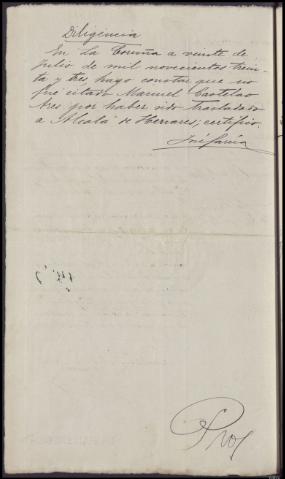 Diligencia
En La Coruña a veinte de
Julio de mil novecientos trein-
ta y tres hago constar que no
fué citado Manuel Castelao
Ares por haber sido trasladado
a Alcalá de Henares; certifico.
José García